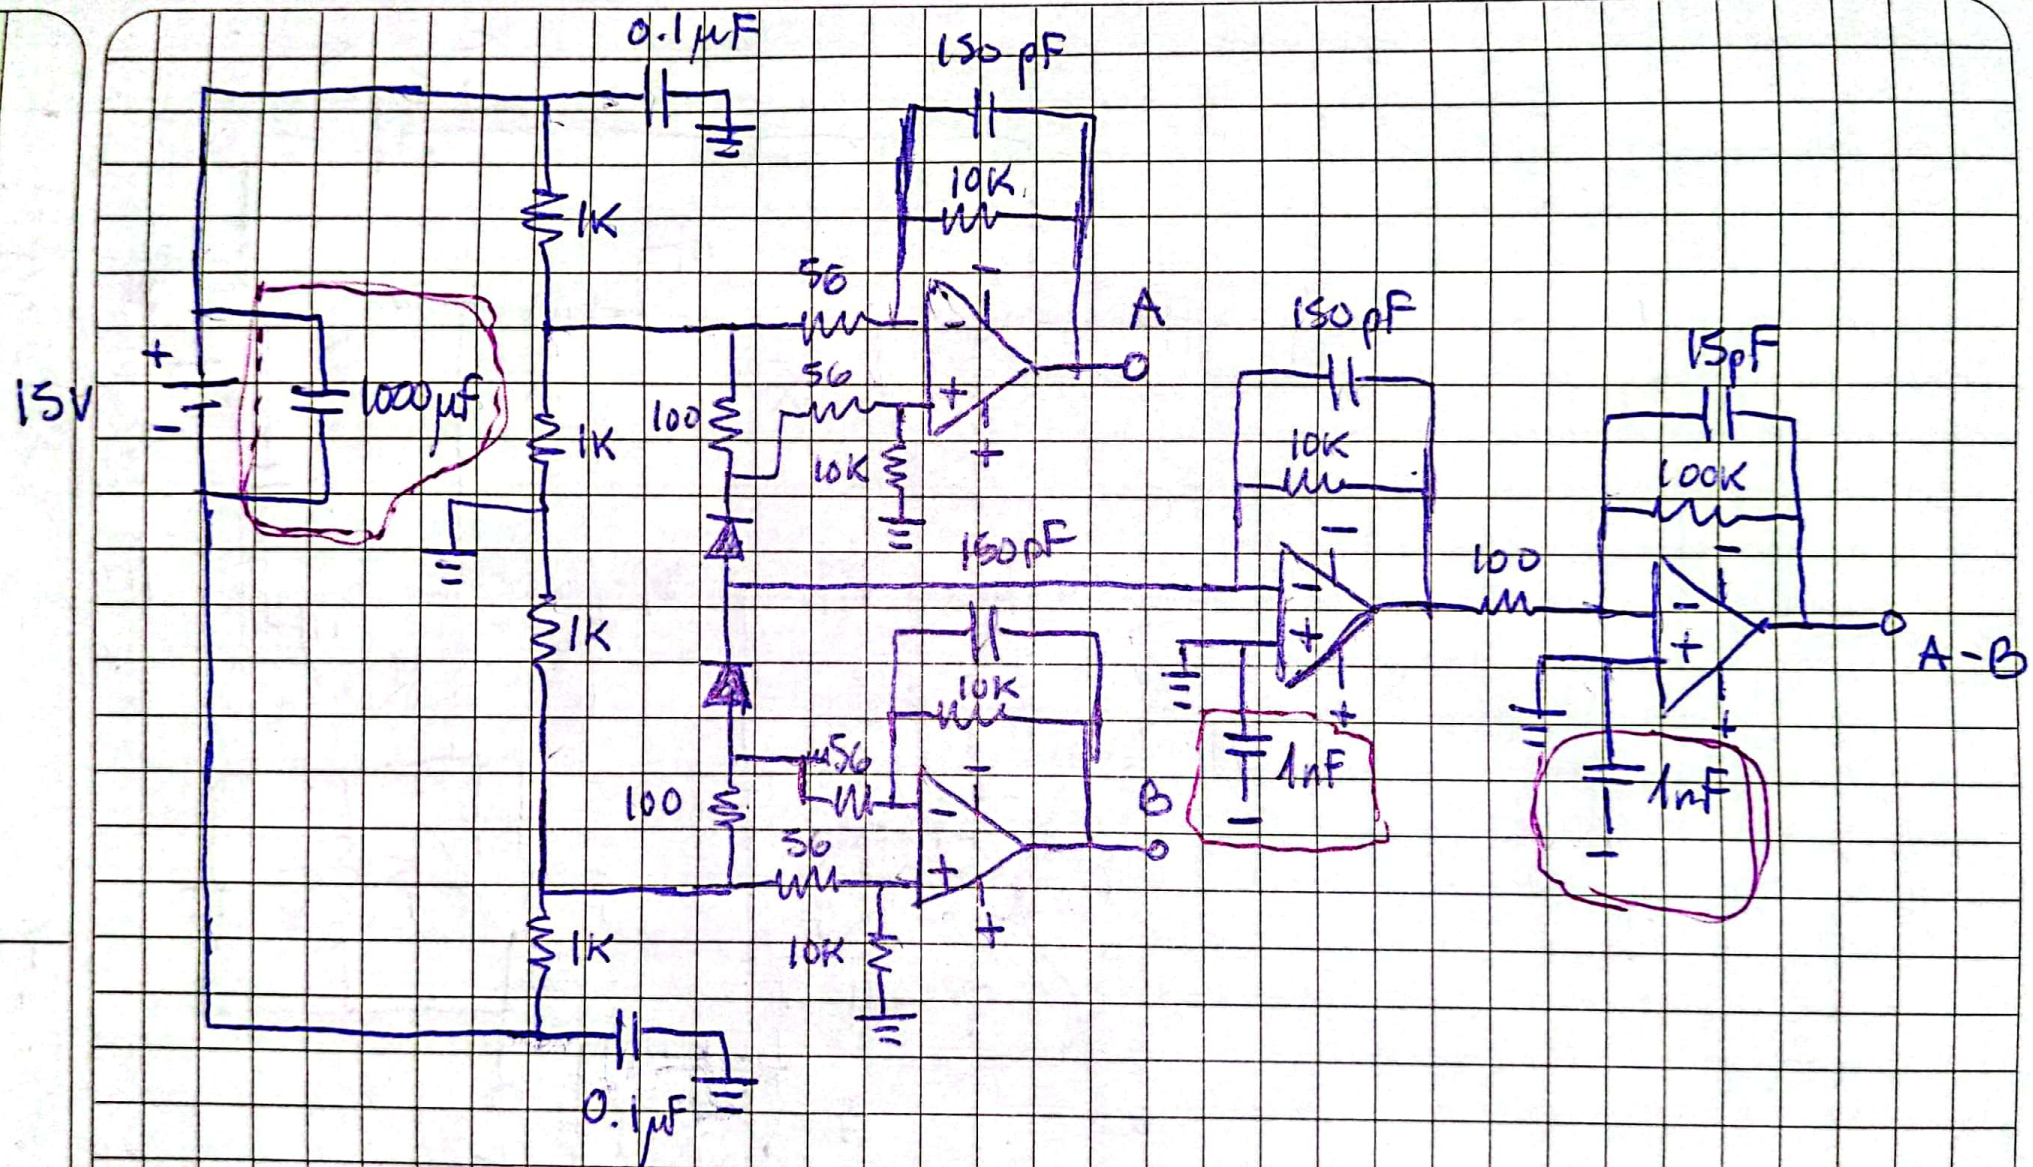 0.1μF
150pF
10K
1K
56
-
-
A
150pF
+
15V
-
1000μF
1K
100
56
+
+
10K
10K
15pF
100K
150pF
-
-
-
-
100
1K
+
+
A-B
10K
56
-
+
1nF
-
+
1nF
-
100
-
B
56
+
+
1K
10K
0.1μF